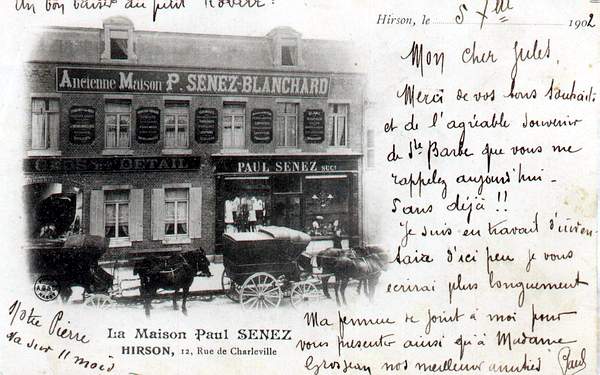 Un bon baiser du petit Robert
Hirson, le 5 Xbre 1902
Mon cher Jules,
Merci de vos bons souhaits
et de l'agréable souvenir
de Ste Barbe que vous me
rappelez aujourd'hui -
5 ans déjà !!
Je suis en travail d'inven-
taire d'ici peu je vous
écrirai plus longuement
Ma femme se joint à moi pour
vous présenter ainsi qu'à Madame
Grosjean nos meilleurs amitiés Paul
ANCIENNE MAISON P. SENEZ-BLANCHARD
GROS & DETAIL
PAUL SENEZ SUCR
Notre Pierre
va sur 11 mois
La Maison Paul SENEZ
HIRSON, 12, Rue de Charleville